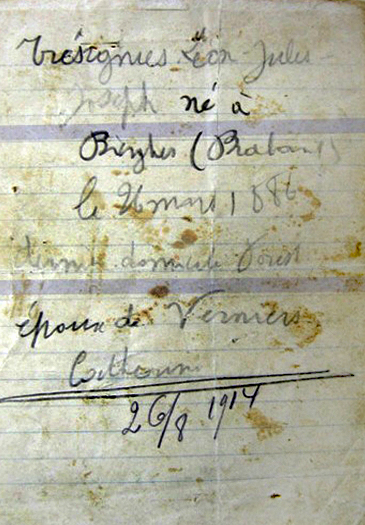 Trésignies Léon Jules
Joseph né à
Bierghes (Brabant)
le 26 mars 1886
dernier domicile Forest
époux de Verniers
26/8 1914